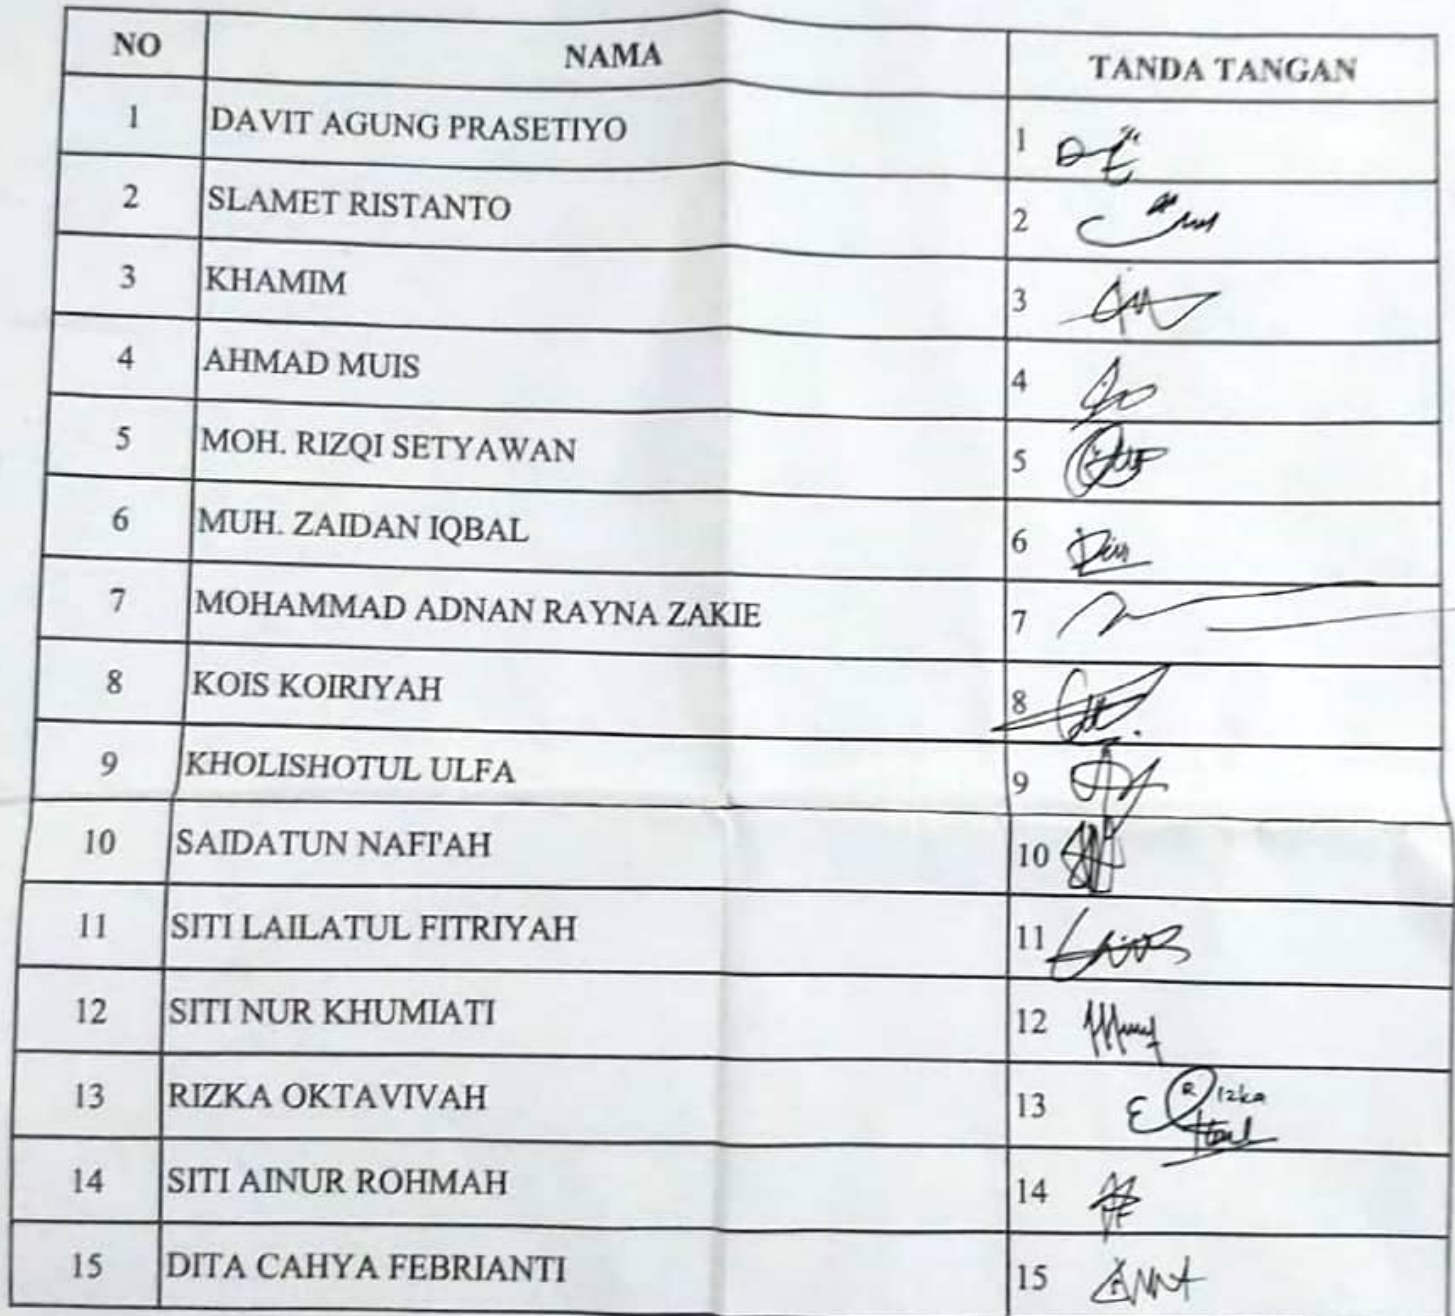 NO NAMA TANDA TANGAN
1 DAVIT AGUNG PRASETIYO 1
2 SLAMET RISTANTO 2
3 KHAMIM 3
4 AHMAD MUIS 4
5 MOH. RIZQI SETYAWAN 5
6 MUH. ZAIDAN IQBAL 6
7 MOHAMMAD ADNAN RAYNA ZAKIE 7
8 KOIS KOIRIYAH 8
9 KHOLISHOTUL ULFA 9
10 SAIDATUN NAFI'AH 10
11 SITI LAILATUL FITRIYAH 11
12 SITI NUR KHUMIATI 12
13 RIZKA OKTAVIVAH 13 Rizka
14 SITI AINUR ROHMAH 14
15 DITA CAHYA FEBRIANTI 15